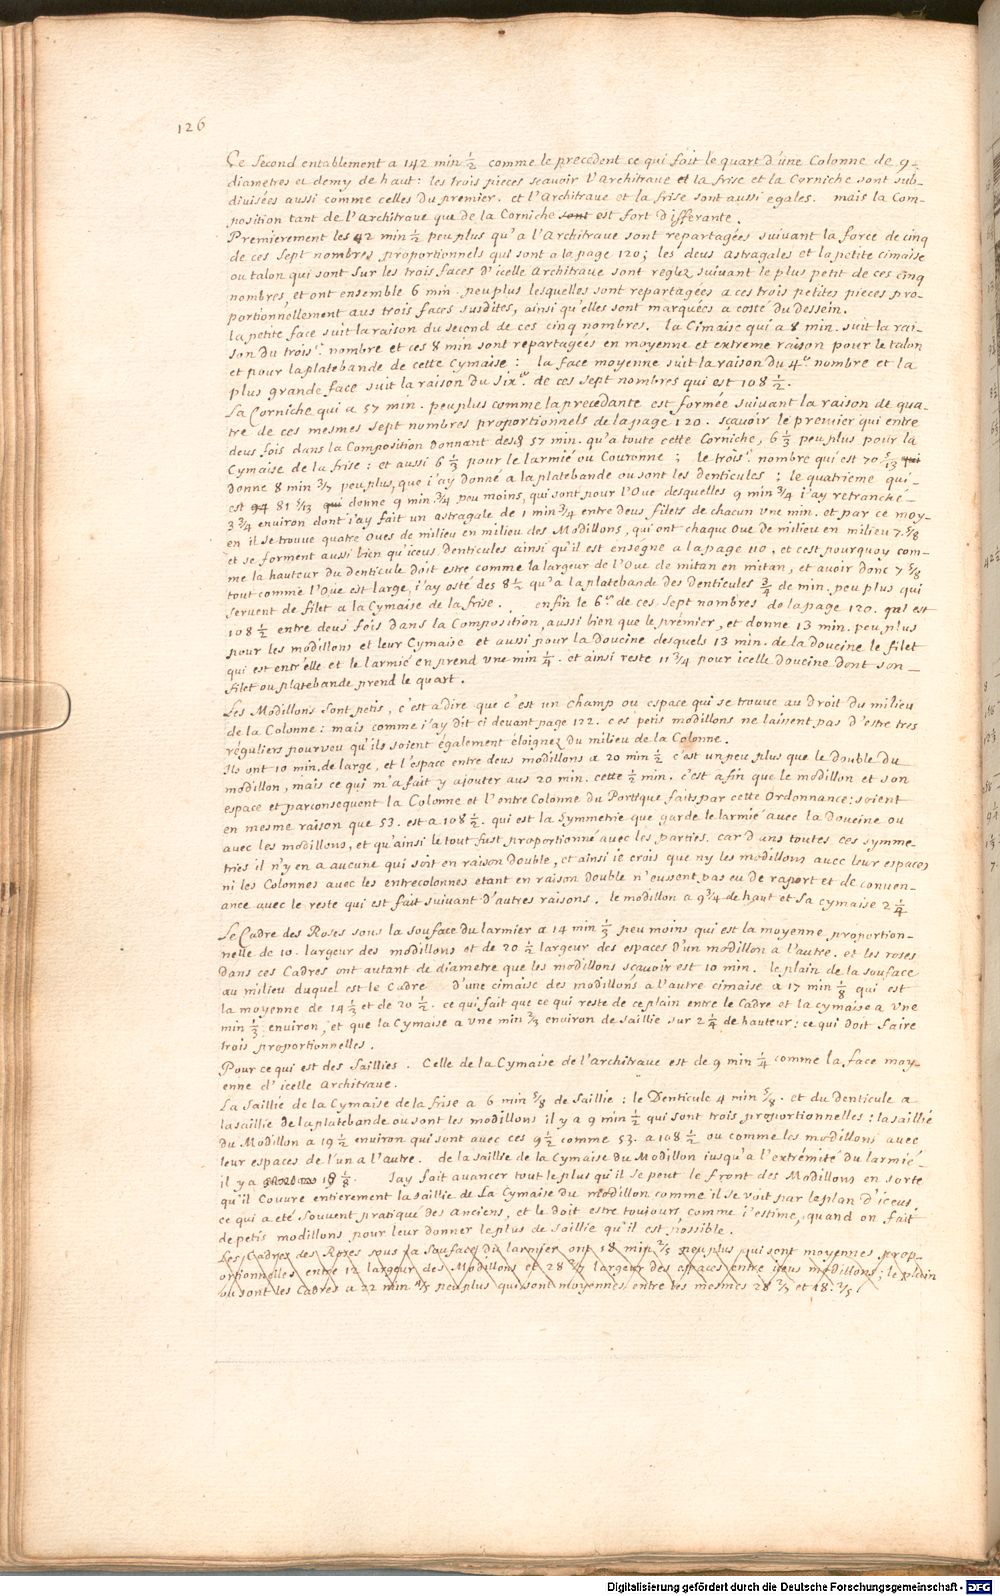 126
Ce second entablement a 142 min ½ comme le precedent ce qui fait le quart d'une Colonne de 9-
diametres et demy de haut: les trois pieces scavoir l'Architrave et la frise et la Corniche sont sub-
divisées aussi comme celles du premier. et l'Architrave et la frise sont aussi egales. mais la Com-
position tant de l'Architrave que de la Corniche sont est fort differante.
Premierement les 42 min ½ peu plus qu'a l'Architrave sont repartagées suivant la force de cinq
de ces sept nombres proportionnels qui sont a la page 120; les deus Astragales et la petite cimaise
ou talon qui sont sur les trois faces d'icelle Architrave sont reglez suivant le plus petit de ces cinq
nombres, et ont ensemble 6 min. peu plus lesquelles sont repartagées a ces trois petites pieces pro-
portionnellement aus trois faces susdites, ainsi qu'elles sont marquées a costé du dessein.
la petite face suit la raison du second de ces cinq nombres. la Cimaise qui a 8 min. suit la rai-
son du trois.e nombre et ces 8 min sont repartagées en moyenne et extreme raison pour le talon
et pour la platebande de cette Cymaise: la face moyenne suit la raison du 4.e nombre et la
plus grande face suit la raison du six.e de ces sept nombres qui est 108 ½.
La Corniche qui a 57 min. peu plus comme la precedante est formée suivant la raison de qua-
tre de ces mesmes sept nombres proportionnels de la page 120. sçavoir le premier qui entre
deus fois dans la Composition donnant des 57 min. qu'a toute cette Corniche, 6 ⅓ peu plus pour la
Cymaise de la frise: et aussi 6 ⅓ pour le larmié ou Couronne; le trois.e nombre qui est 70 5/13 qui
donne 8 min 3/7 peu plus, que i'ay donné a la platebande ou sont les denticules; le quatrieme qui-
est 94 81 1/13 qui donne 9 min ¾ peu moins, qui sont pour l'Ove desquelles 9 min ¾ i'ay retranché-
3 ¾ environ dont i'ay fait un astragale de 1 min ¾ entre deus filets de chacun vne min. et par ce moy-
en il se trouve quatre Oves de milieu en milieu des Modillons, qui ont chaque Ove de milieu en milieu 7. 5/8
et se forment aussi bien qu'iceus denticules ainsi qu'il est enseigné a la page 110, et cest pourquoy com-
me la hauteur du denticule doit estre comme la largeur de l'Ove de mitan en mitan, et avoir donc 7 5/8
tout comme l'Ove est large, i'ay osté des 8 ½ qu'a la platebande des Denticules ¾ de min. peu plus qui
servent de filet a la Cymaise de la frise. enfin le 6.e de ces sept nombres de la page 120. qui est
108 ½ entre deus fois dans la Composition, aussi bien que le premier, et donne 13 min. peu plus
pour les modillons et leur Cymaise et aussi pour la Doucine desquels 13 min. de la doucine le filet
qui est entr'elle et le larmié en prend vne min ¼. et ainsi reste 11 ¾ pour icelle doucine dont son-
filet ou platebande prend le quart.
Les Modillons sont petis, c'est a dire que c'est un champ ou espace qui se trouve au droit du milieu
de la Colonne: mais comme i'ay dit ci devant page 122. ces petis modillons ne laissent pas d'estre tres
réguliers pourveu qu'ils soient également éloignez du milieu de la Colonne.
Ils ont 10 min. de large, et l'espace entre deus modillons a 20 min ½ c'est un peu plus que le double du
modillon, mais ce qui m'a fait y ajouter aus 20 min. cette ½ min. c'est afin que le modillon et son
espace et par consequent la Colonne et l'entre Colonne du Portique faits par cette Ordonnance: soient
en mesme raison que 53. est a 108 ½. qui est la Symmetrie que garde le larmié avec la Douceine ou
avec les modillons, et qu'ainsi le tout fust proportionné avec les parties. car dans toutes ces symme-
tries il n'y en a aucune qui soit en raison double, et ainsi ie crois que ny les modillons avec leur espaces
ni les Colonnes avec les entrecolonnes etant en raison double n'eussent pas eu de raport et de conven-
ance avec le reste qui est fait suivant d'autres raisons. le modillon a 9 ¾ de haut et sa cymaise 2 ¼
Le Cadre des Roses sous la souface du larmier a 14 min ⅓ peu moins qui est la moyenne proportion-
nelle de 10. largeur des modillons et de 20 ½ largeur des espaces d'un modillon a l'autre. et les roses
dans ces Cadres ont autant de diametre que les modillons scavoir est 10 min. le plain de la souface
au milieu duquel est le Cadre d'une cimaise des modillons a l'autre cimaise a 17 min ⅛ qui est
la moyenne de 14 ⅓ et de 20 ½. ce qui fait que ce qui reste de ce plain entre le Cadre et la cymaise a vne
min ⅓ environ, et que la Cymaise a vne min ⅔ environ de saillie sur 2 ¼ de hauteur: ce qui doit faire
trois proportionnelles.
Pour ce qui est des Saillies. Celle de la Cymaise de l'architrave est de 9 min ¼ comme la face moy-
enne d'icelle Architrave.
La Saillie de la Cymaise de la frise a 6 min 5/8 de Saillie: le Denticule 4 min 5/8. et du denticule a
la saillie de la platebande ou sont les modillons il y a 9 min ½ qui sont trois proportionnelles: la saillié
du Modillon a 19 ½ environ qui sont avec ces 9 ½ comme 53. a 108 ½ ou comme les modillons avec
leur espaces de l'un a l'autre. de la saillie de la Cymaise du Modillon iusqu'a l'extrémité du larmié-
il y a 18 ⅛. Jay fait avancer tout le plus qu'il se peut le front des Modillons en sorte
qu'il Couvre entierement la saillie de La Cymaise du modillon comme il se voit par le plan d'iceus,
ce qui a eté souvent pratiqué des Anciens, et le doit estre toujours comme i'estime, quand on fait
de petis modillons pour leur donner le plus de saillie qu'il est possible.
Les Cadres des Roses sous la souface du larmier ont 18 min ⅖ peu plus qui sont moyennes prop-
ortionnelles entre 12 largeur des Modillons et 28 2/7 largeur des espaces entre iceus modillons; le plain
ou sont les Cadres a 22 min 4/5 peu plus qui sont moyennes entre les mesmes 28 2/7 et 18. ⅖
Digitalisierung gefördert durch die Deutsche Forschungsgemeinschaft - DFG